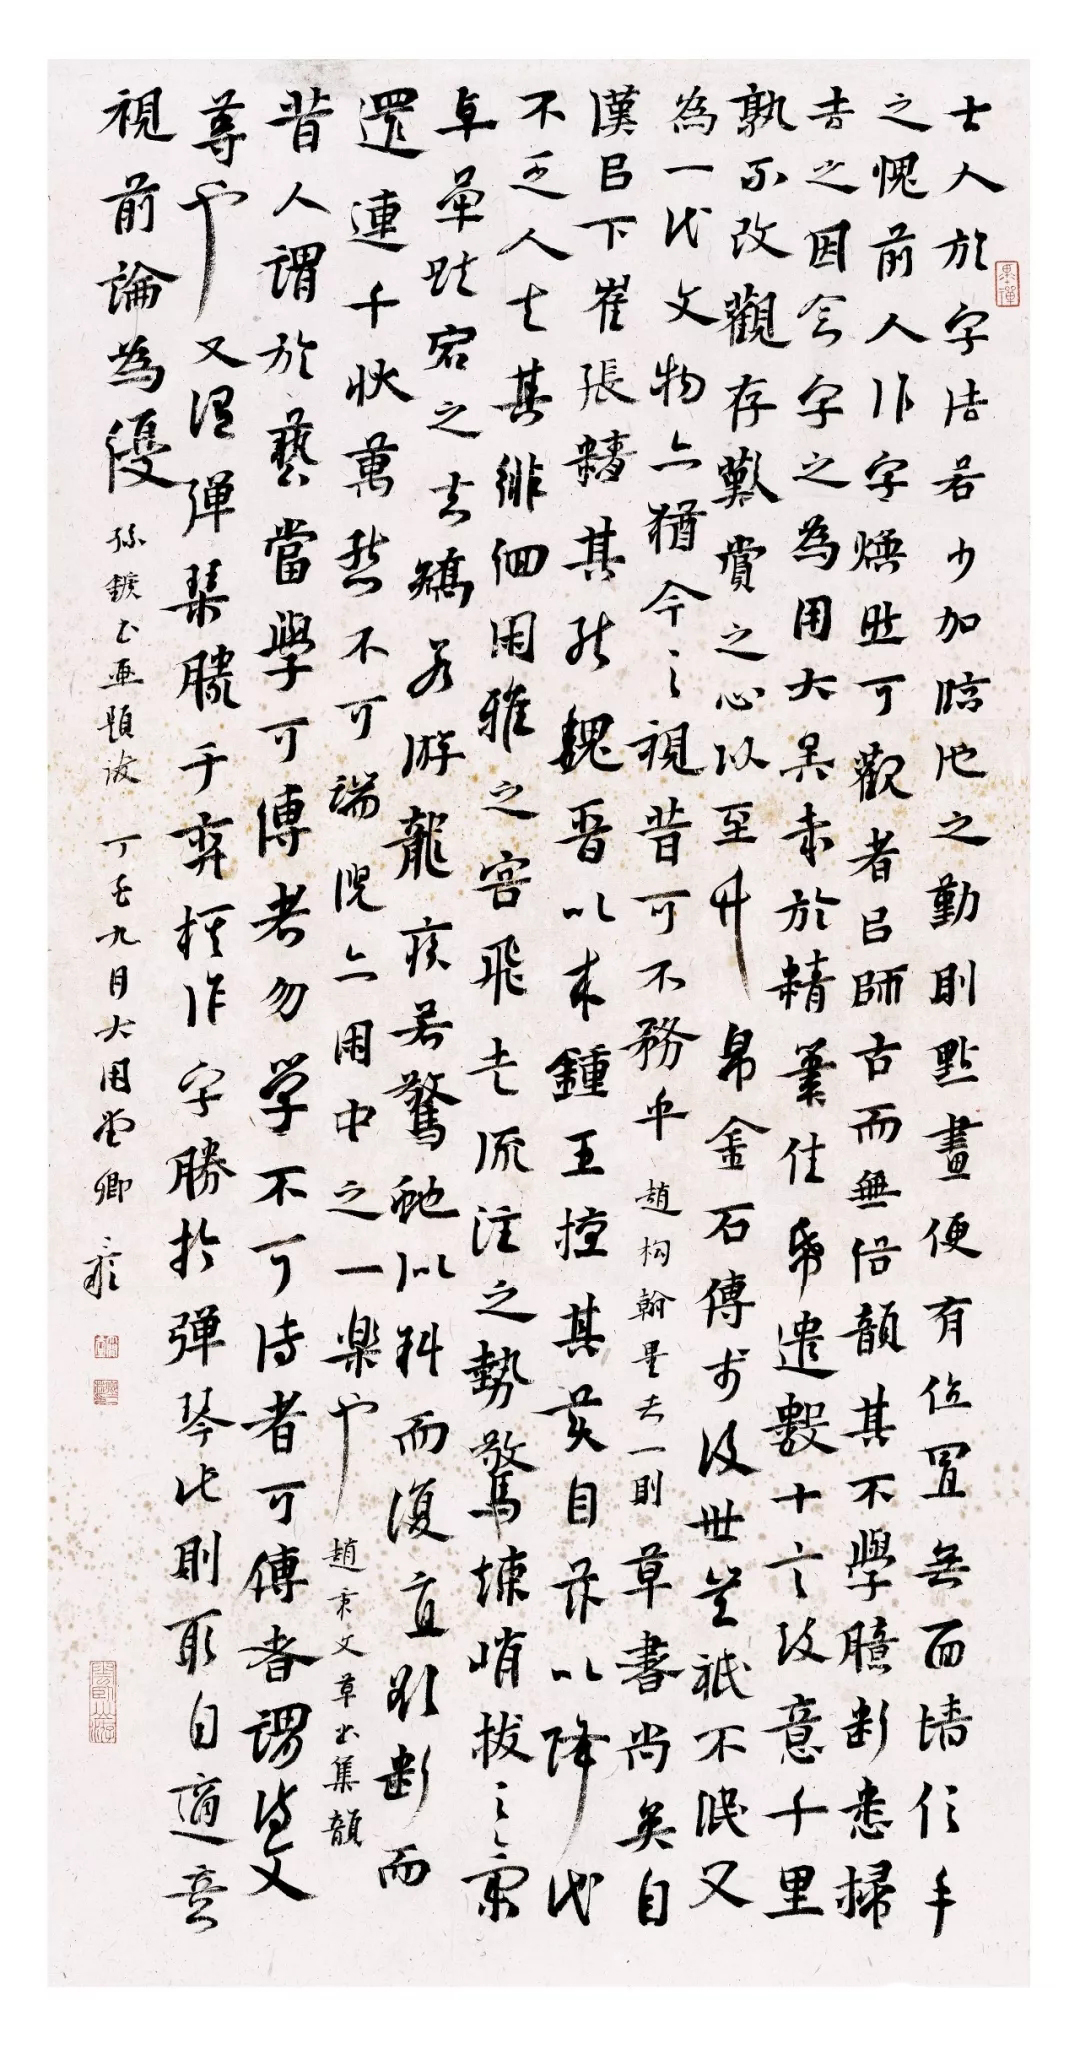 士人於字法若少加臨池之勤則點畫便有位置無面墻信手
之愧前人作字煥然可觀者以師古而無俗韻其不學臆斷悉掃
去之因念字之為用大矣哉於精筆佳紙遣數十言致意千里
孰不改觀存歎賞之心以至竹帛金石傳於後世豈祇不泯又
為一代文物亦猶今之視昔可不務乎 趙構翰墨志一則 草書尚矣自
漢以下崔張精其能魏晉以來鍾王擅其美自茲以降代
不乏人夫其徘徊閑雅之容飛走流注之勢驚竦峭拔之氣
卓犖跌宕之志矯若游龍疾若驚蛇似斜而復直欲斷而
還連千狀萬態不可端倪亦閑中之一樂也 趙秉文草書集韻
昔人謂於藝當學可傳者勿學不可傳者可傳者謂詩文
尊也又謂彈琴勝于弈棋作字勝於彈琴此則取自適意
視前論為優 孫鑛書畫題跋 丁酉九月大用堂卿